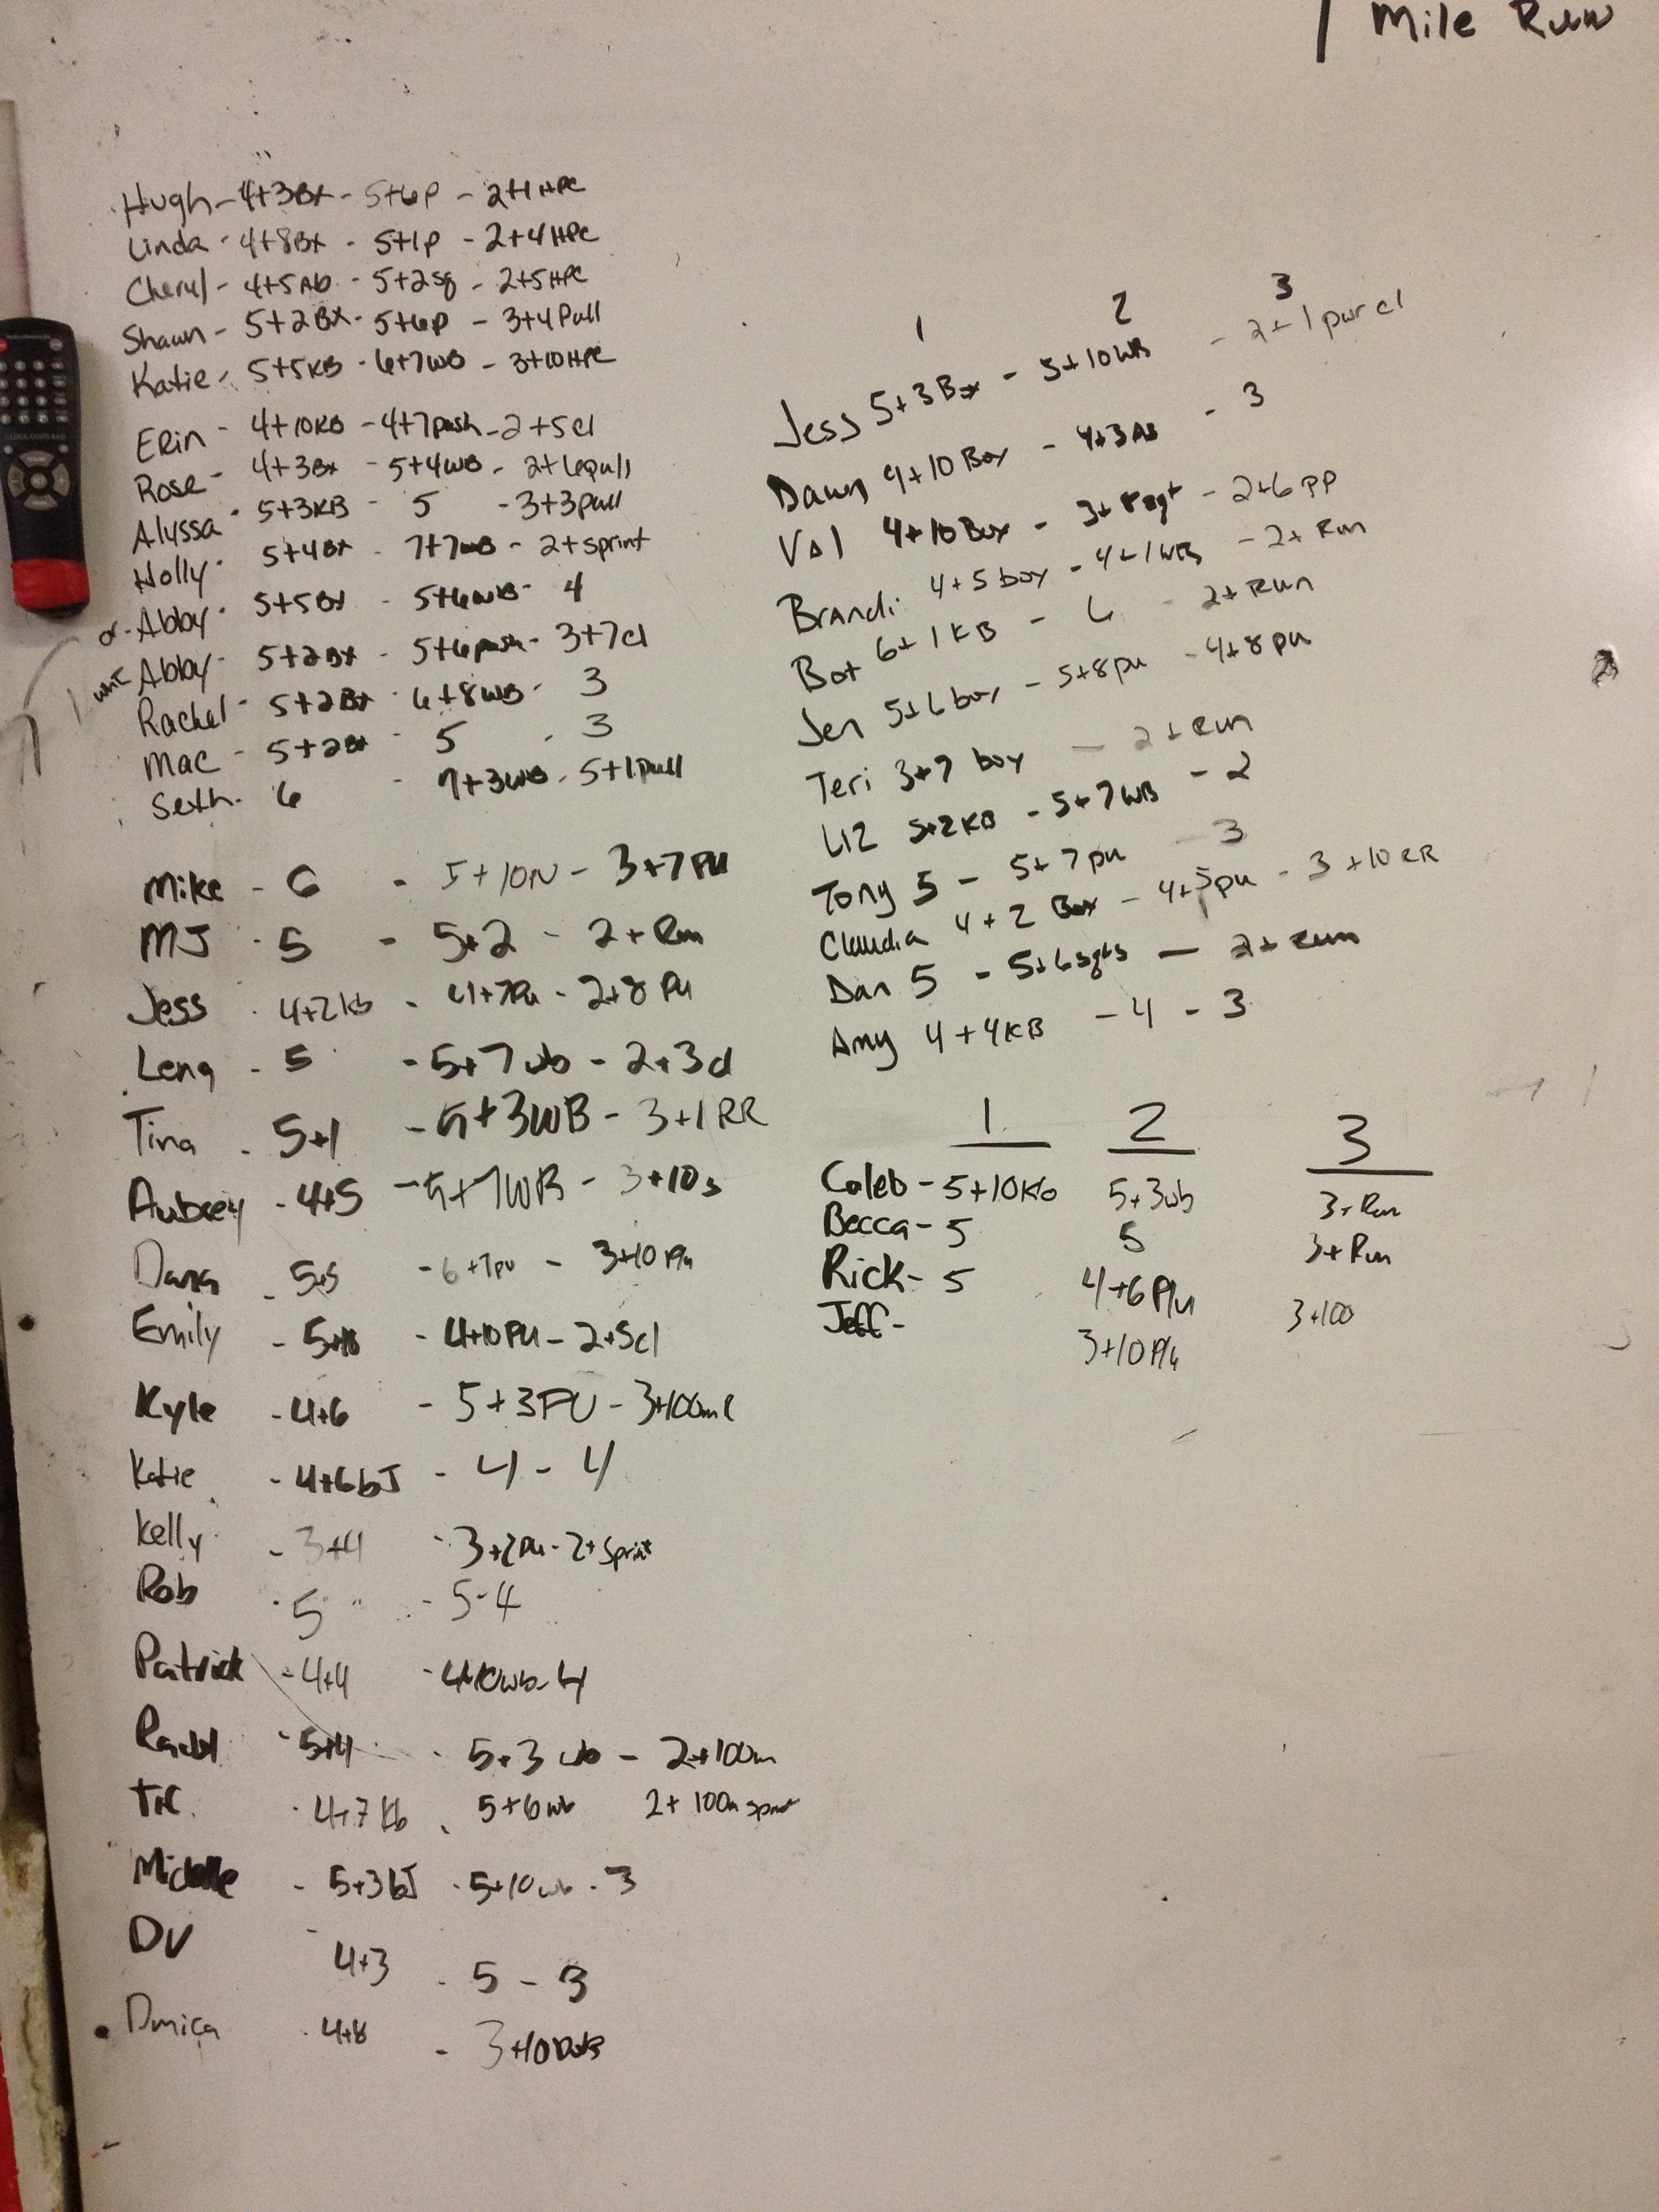 1 Mile Run
Hugh - 4+3Bx - 5+6P - 2+1 HPC
Linda - 4+8Bx - 5+1P - 2+4 HPC
Cheryl - 4+5Ab - 5+2sq - 2+5HPC
Shawn - 5+2BX - 5+6P - 3+4 Pull
Katie - 5+5KB - 6+7WB - 3+10HPC
Erin - 4+10KB - 4+7push - 2+5cl
Rose - 4+3Bx - 5+4WB - 2+6pull
Alyssa - 5+3KB - 5 - 3+3pull
Holly - 5+4Bx - 7+7WB - 2+sprint
or - Abby - 5+5Bx - 5+6WB - 4
whit Abby - 5+2Bx - 5+6push - 3+7cl
Rachel - 5+2Bx - 6+8WB - 3
Mac - 5+2Bx - 5 - 3
Seth - 6 - 7+3WB - 5+1pull
Mike - 6 - 5+10PU - 3+7PU
MJ - 5 - 5+2 - 2+Run
Jess - 4+2Kb - 4+7Pu - 2+8 Pu
Leng - 5 - 5+7wb - 2+3cl
Tina - 5+1 - 5+3WB - 3+1RR
Aubrey - 4+5 - 5+7WB - 3+10s
Dana - 5+5 - 6+7pu - 3+10 Plu
Emily - 5+10 - 4+10PU - 2+5cl
Kyle - 4+6 - 5+3PU - 3+100m
Katie - 4+6bJ - 4 - 4
Kelly - 3+4 - 3+2Pu - 2+Sprint
Rob - 5 - 5-4
Patrick - 4+4 - 4+10wb - 4
Rachl - 5+4 - 5+3 wb - 2+100m
4+7 Kb - 5+6wb 2+100m sprint
Michelle - 5+3bJ - 5+10wb - 3
DV - 4+3 - 5 - 3
4+8 - 3+10
1 2 3
Jess 5+3Box - 5+10WB - 2+1 pwr cl
Dawn 4+10 Box - 4+3AB - 3
Val 4+10Box - 3+8sqt - 2+6PP
Brandi 4+5 box - 4+1WB - 2+ Run
Bot 6+1KB - 6 - 2+Run
Jen 5+6box - 5+8pu - 4+8pu
Teri 3+7 box - 2+Run
Liz 5+2KB - 5+7WB - 2
Tony 5 - 5+7pu - 3
Claudia 4+2 Box - 4+5pu - 3+10RR
Dan 5 - 5+6sqts - 2+Run
Amy 4+4KB - 4 - 3
1 2 3
Caleb - 5+10Kb 5+3wb 3+Run
Becca - 5 5 3+Run
Rick - 5 4+6P/u 3+100
Jeff - 3+10P/u